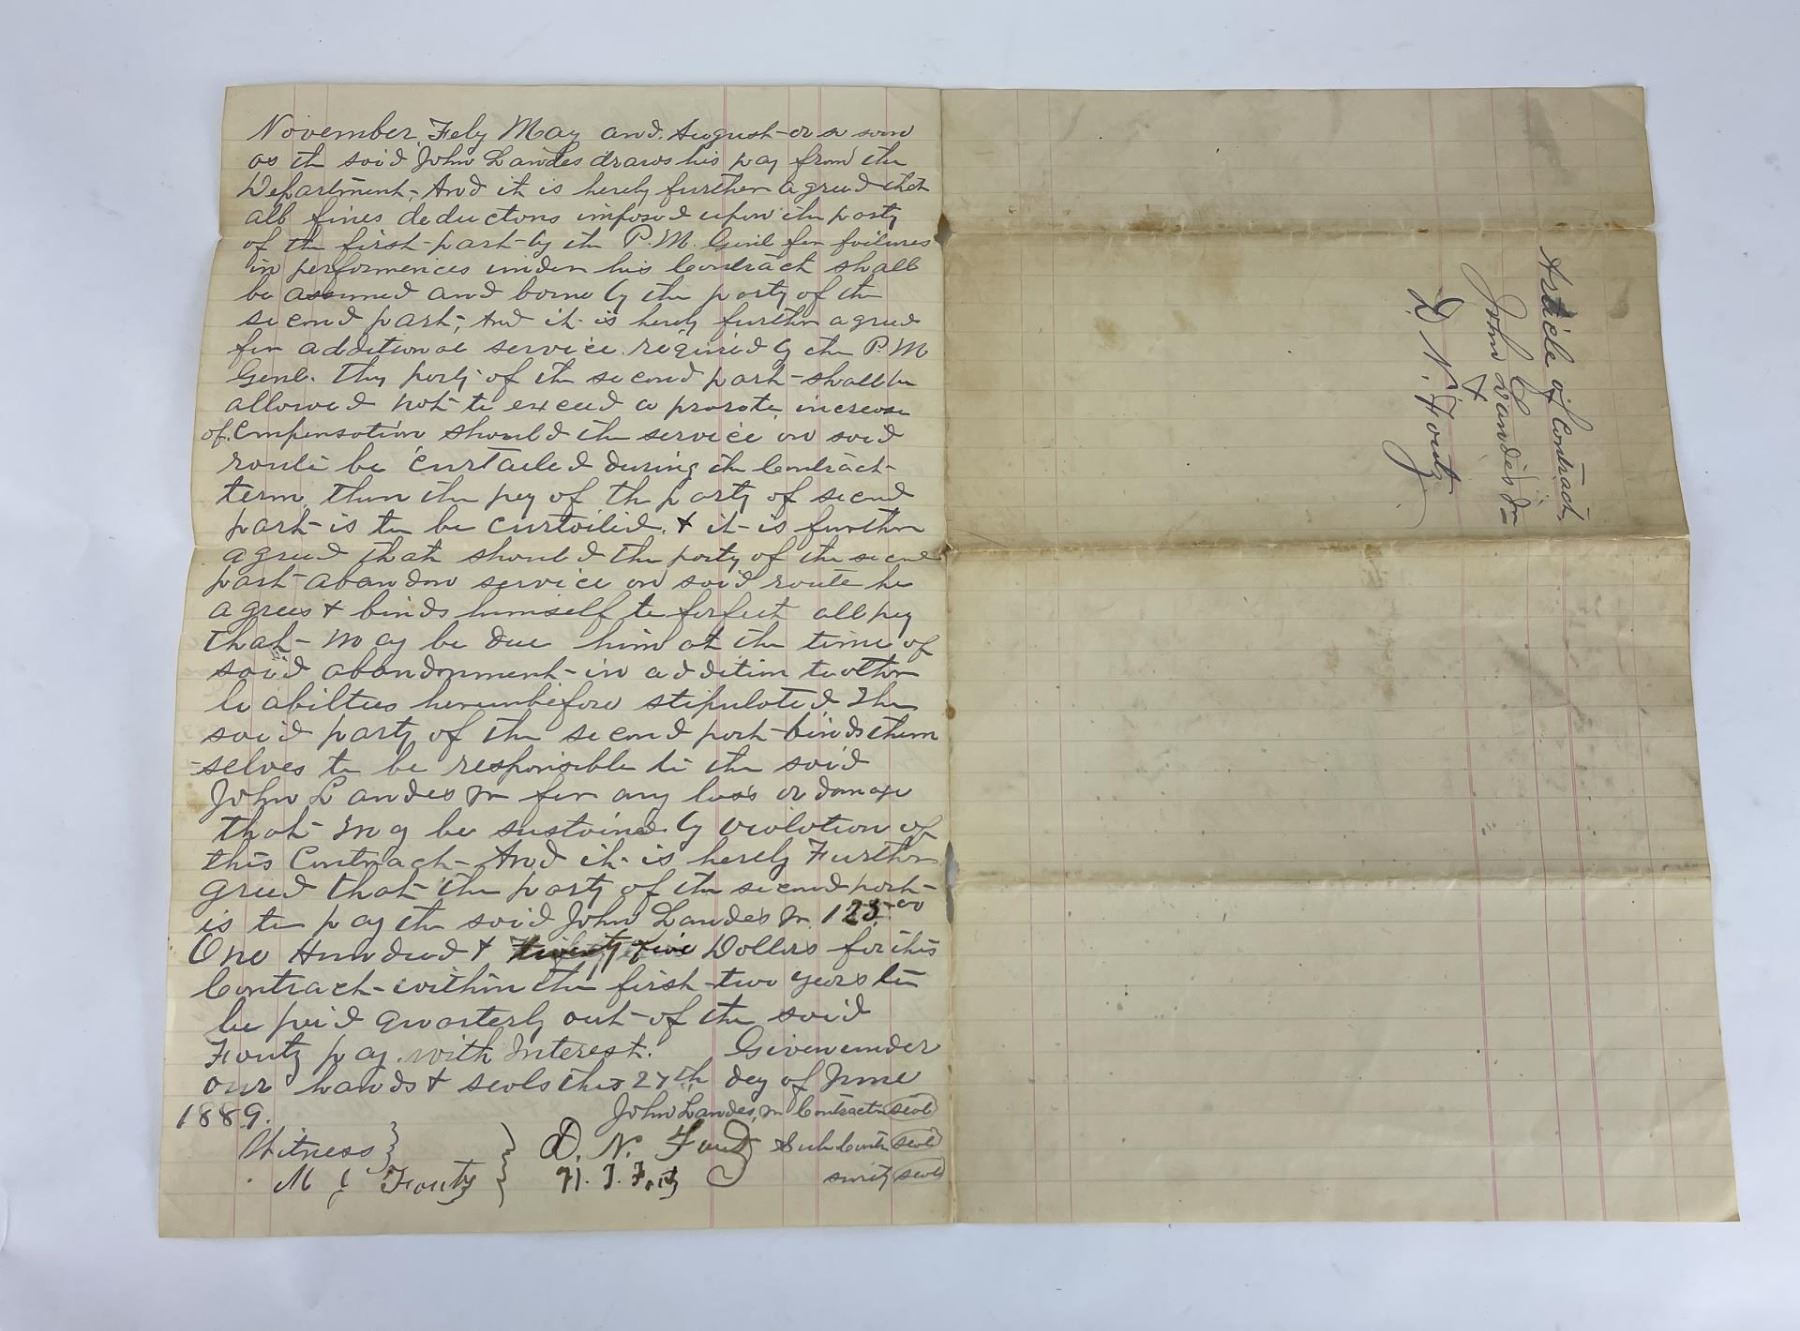 November, Feby May and August or so soon
as the said John Landes draws his pay from the
Department, And it is hereby further agreed that
all fines deductons imposed upon the party
of the first part by the P.M. Genl for failures
in performences under his Contract shall
be assumed and borne by the party of the
second part, And it is hereby further agreed
for additional service required by the P.M
Genl. They party of the second part shall be
allowed not to exceed a prorate increase
of compensation should the service on said
route be curtailed during the Contract
term then the pay of the party of second
part is to be curtailed & it is further
agreed that should the party of the second
part abandon service on said route he
agrees & binds himself to forfeit all pay
that may be due him at the time of
said abandonment in addition to other
liabilties hereinbefore stipulated. The
said party of the second part binds them
-selves to be responsible to the said
John Landes Jr for any loss or damage
that may be sustained by violation of
this Contract And it is hereby Further
greed that the party of the second part
is to pay the said John Landes Jr. 125.00
One Hundred & twenty five Dollars for this
Contract within the first two years to
be paid quarterly out of the said
Foutz pay with Interest. Given under
our hands & seals this 27th day of June
1889. John Landes, Jr Contractor seal
Witness } } D. N. Foutz Sub Contr seal
M Foutz surity seal
Article of Contract
John Landes Jr
&
D. N. Foutz